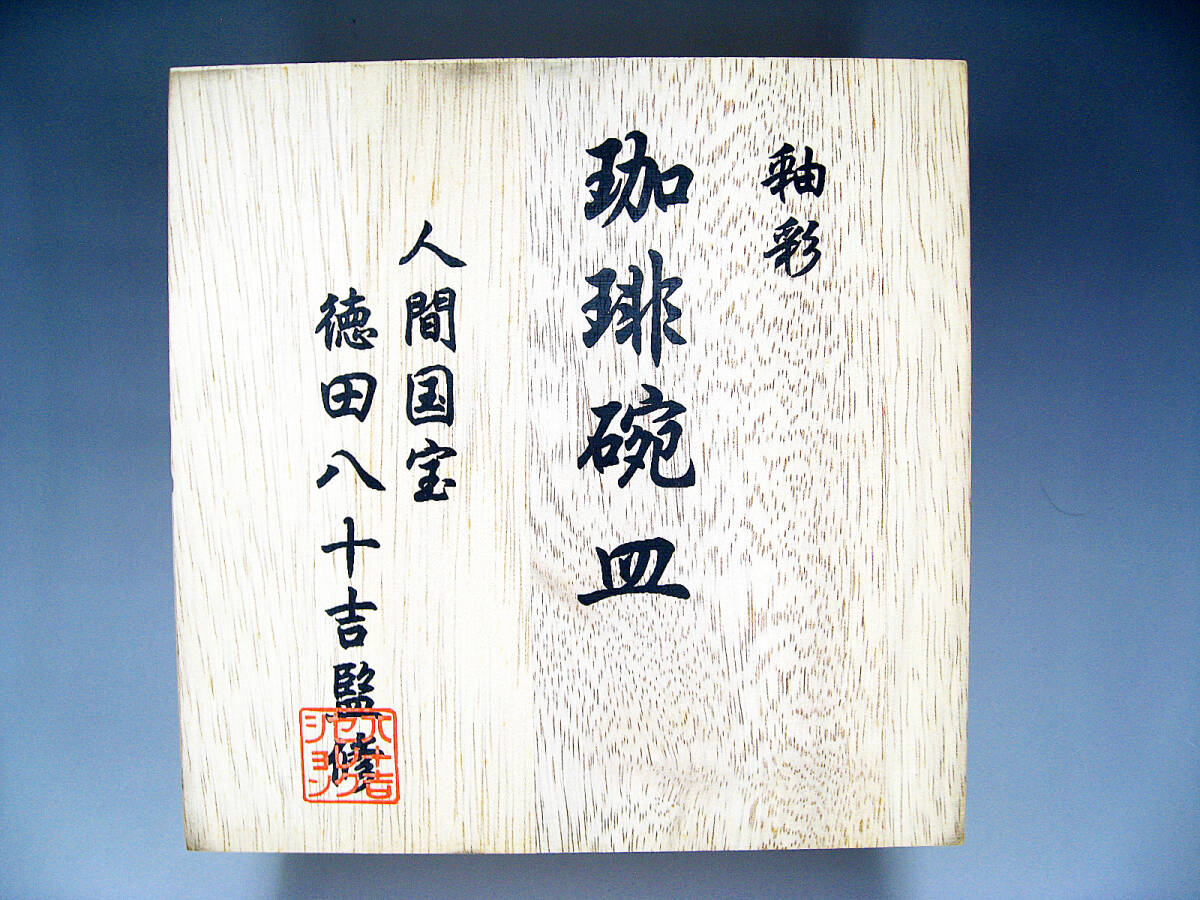 釉彩
珈琲碗皿
人間国宝
徳田八十吉監修
八十吉
セレクション